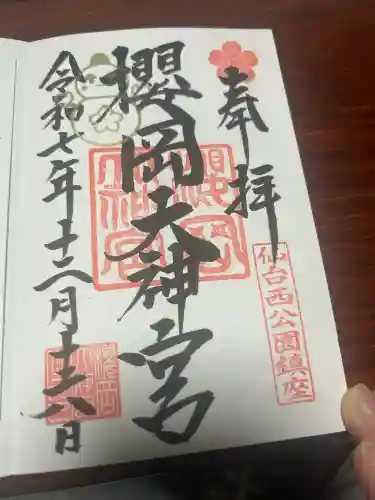 奉拝
仙台西公園鎮座
櫻岡大神宮
令和七年十二月十六日